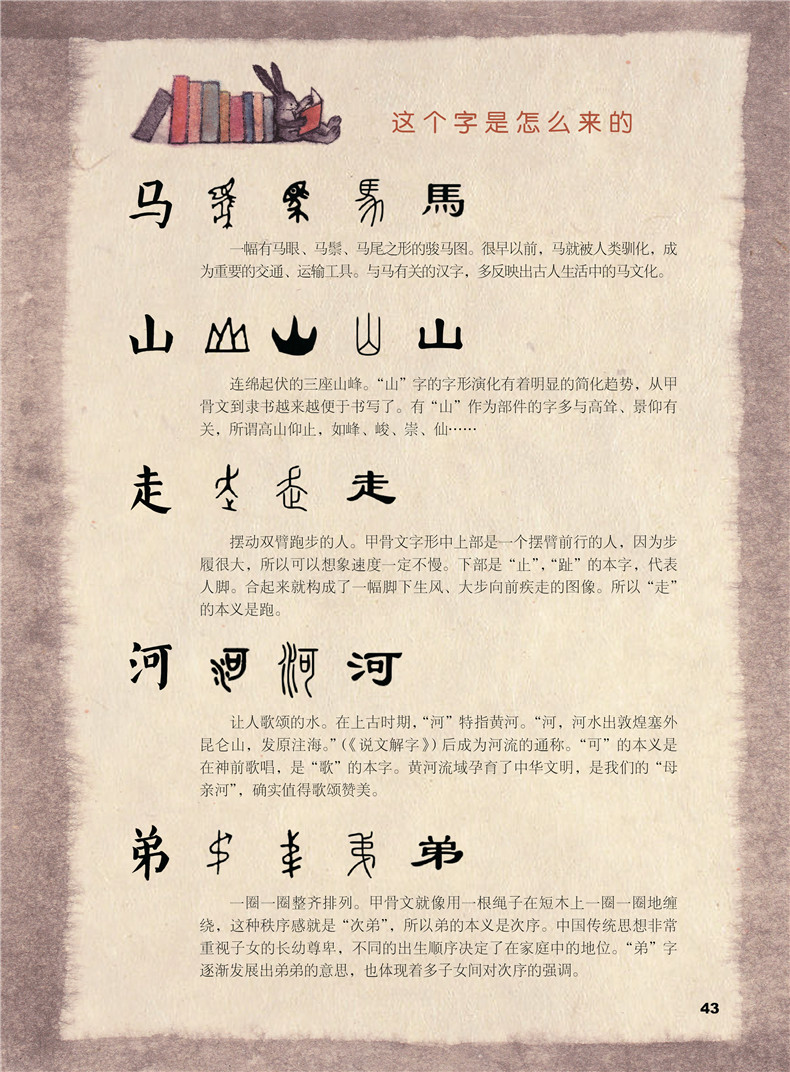 这个字是怎么来的
马 馬
一幅有马眼、马鬃、马尾之形的骏马图。很早以前，马就被人类驯化，成
为重要的交通、运输工具。与马有关的汉字，多反映出古人生活中的马文化。
山 山 山 山 山
连绵起伏的三座山峰。“山”字的字形演化有着明显的简化趋势，从甲
骨文到隶书越来越便于书写了。有“山”作为部件的字多与高耸、景仰有
关，所谓高山仰止，如峰、峻、崇、仙……
走 走 走 走
摆动双臂跑步的人。甲骨文字形中上部是一个摆臂前行的人，因为步
履很大，所以可以想象速度一定不慢。下部是“止”，“趾”的本字，代表
人脚。合起来就构成了一幅脚下生风、大步向前疾走的图像。所以“走”
的本义是跑。
河 河 河 河
让人歌颂的水。在上古时期，“河”特指黄河。“河，河水出敦煌塞外
昆仑山，发原注海。”（《说文解字》）后成为河流的通称。“可”的本义是
在神前歌唱，是“歌”的本字。黄河流域孕育了中华文明，是我们的“母
亲河”，确实值得歌颂赞美。
弟 弟 弟 弟 弟
一圈一圈整齐排列。甲骨文就像用一根绳子在短木上一圈一圈地缠
绕，这种秩序感就是“次弟”，所以弟的本义是次序。中国传统思想非常
重视子女的长幼尊卑，不同的出生顺序决定了在家庭中的地位。“弟”字
逐渐发展出弟弟的意思，也体现着多子女间对次序的强调。
43